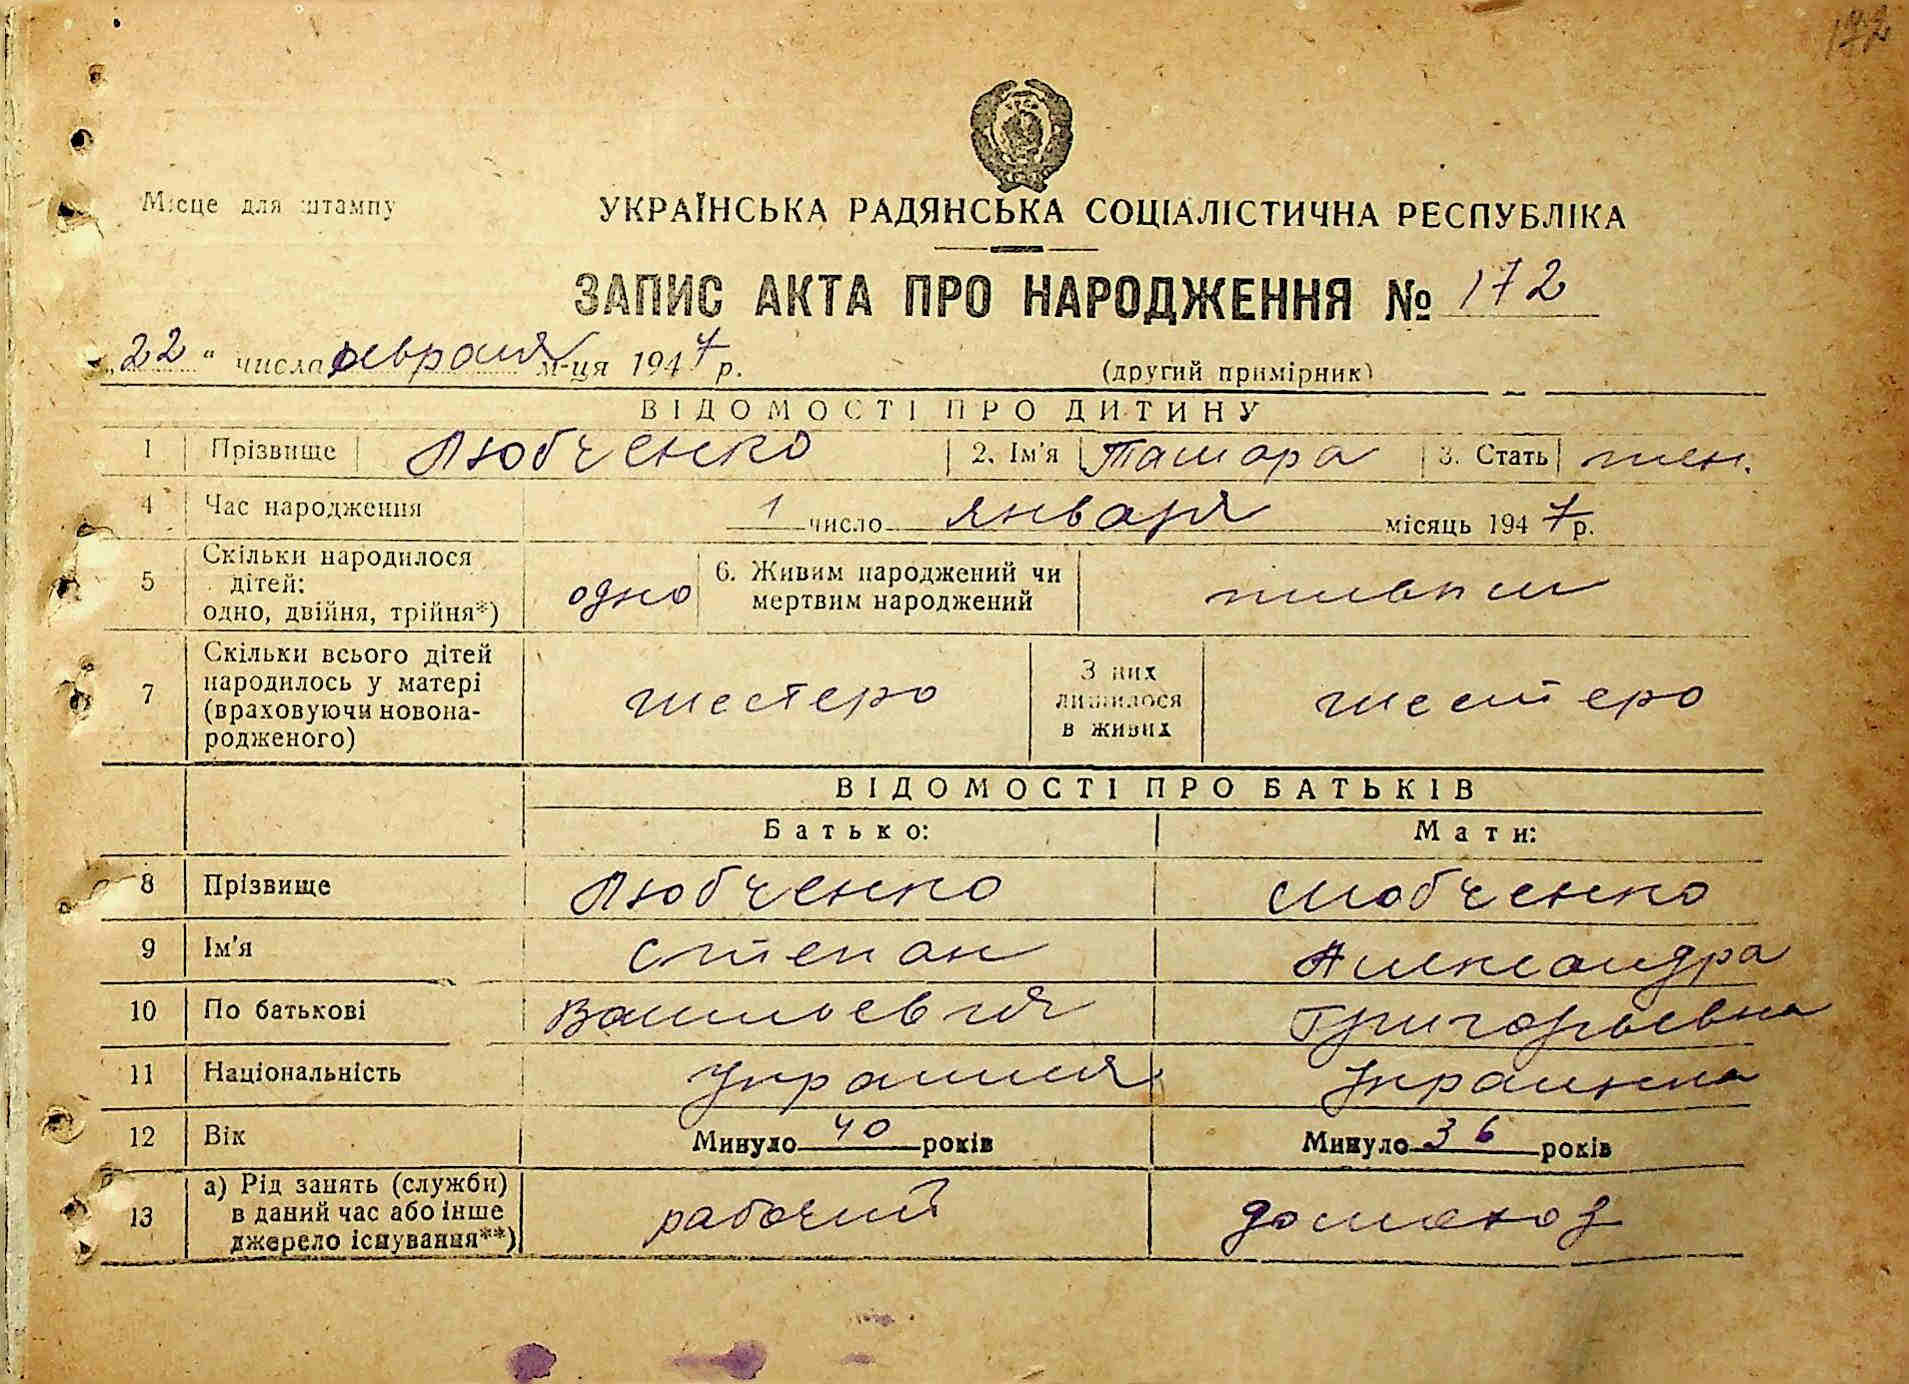 172
Місце для штампу
УКРАЇНСЬКА РАДЯНСЬКА СОЦІАЛІСТИЧНА РЕСПУБЛІКА
ЗАПИС АКТА ПРО НАРОДЖЕННЯ № 172
„22“ числа февраля м-ця 1947 р.
(другий примірник)
ВІДОМОСТІ ПРО ДИТИНУ
1 Прізвище Любченко 2. Ім'я Тамара 3. Стать жен.
4 Час народження 1 число января місяць 1947 р.
5 Скільки народилося дітей: одно, двійня, трійня*) одно 6. Живим народжений чи мертвим народжений живым
7 Скільки всього дітей народилось у матері (враховуючи новонародженого) шестеро З них лишилося в живих шестеро
ВІДОМОСТІ ПРО БАТЬКІВ
Батько: Мати:
8 Прізвище Любченко Любченко
9 Ім'я Степан Александра
10 По батькові Васильевич Григорьевна
11 Національність Украинец Украинка
12 Вік Минуло 40 років Минуло 36 років
13 а) Рід занять (служби) в даний час або інше джерело існування**) рабочий домохоз